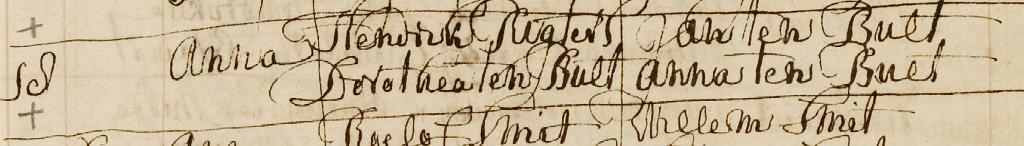 + Hendrik Rutgers Jan ten Bult
Anna
Dorothea ten Bult Anna ten Bult
+ Roelof Smit Willem Smit